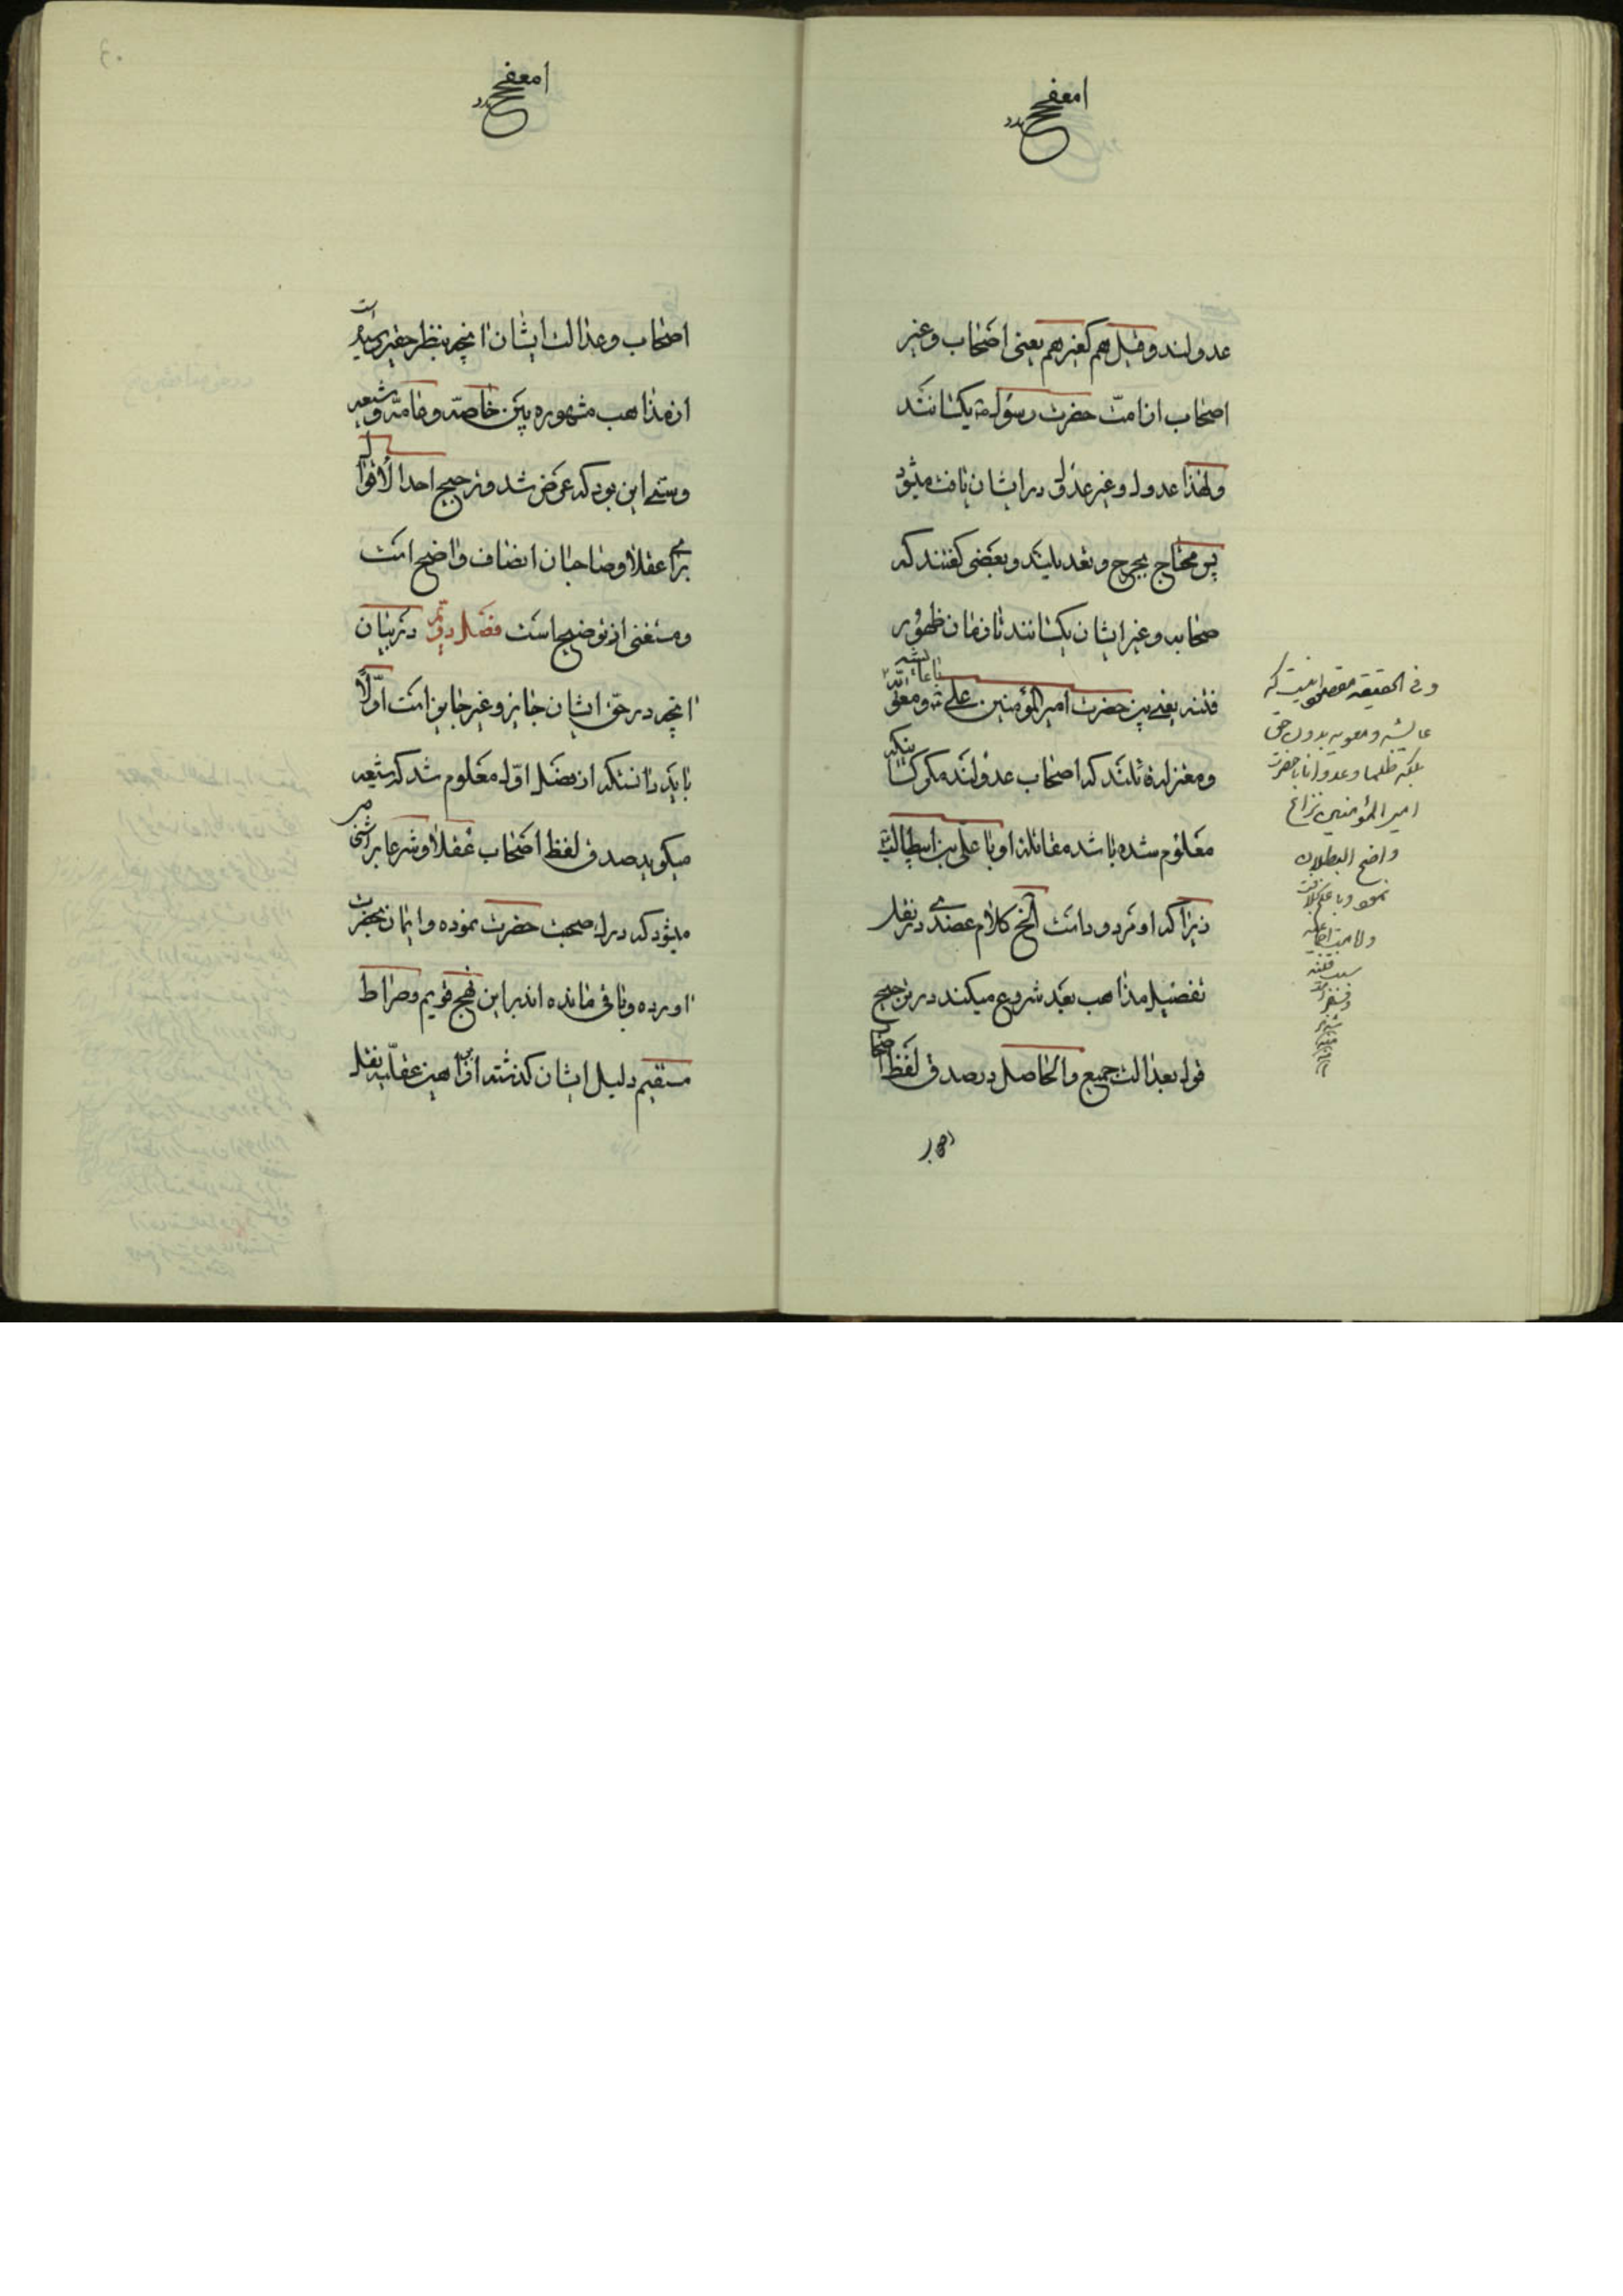 عدولند و قیل هم کغیرهم یعنی اصحاب و غیر
اصحاب از امت حضرت رسول ص یکسانند
و لهذا عدول و غیر عدول در ایشان یافت میشود
پس محتاج بجرح و تعدیلیند و بعضی گفتند که
صحابه و غیر ایشان یکسانند تا زمان ظهور
فتنه یعنی بین حضرت امیر المؤمنین علی ع و
و معتزله قائلند که اصحاب عدولند مگر کسانیکه
معلوم شده باشد مقاتله او با علی بن ابیطالب
زیرا که او مردود است الخ کلام عضدی در نقل
تفصیل مذاهب بعد شروع میکند در ترجیح
قول بعدالت جمیع و الحاصل در صدق لفظ اصحاب
و فی الحقیقة مقصود اینست که
عایشه و معویه بدون حق
بلکه ظلما و عدوانا با حضرت
امیر المؤمنین نزاع
واضح البطلان
اصحاب و عدالت ایشان انچه بنظر حقیر رسیده است
از مذاهب مشهوره بین خاصه و عامه و شیعه
و سنی این بود که عرض شد و ترجیح احد الاقوال
برای عقلا و صاحبان انصاف واضح است
و مستغنی از توضیح است فصل دویم در بیان
انچه در حق ایشان جایز و غیر جایز است اولا
باید دانست که از فصل اول معلوم شد که شیعه
میگوید صدق لفظ اصحاب عقلا و شرعا بر اشخاصی
میشود که درك صحبت حضرت نموده و ایمان بحضرت
اورده و باقی مانده اند بر این نهج قویم و صراط
مستقیم دلیل ایشان گذشته از براهین عقلیه نقل